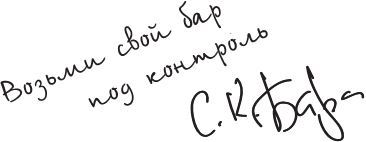 Возьми свой бар
под контроль
С.К.Бара